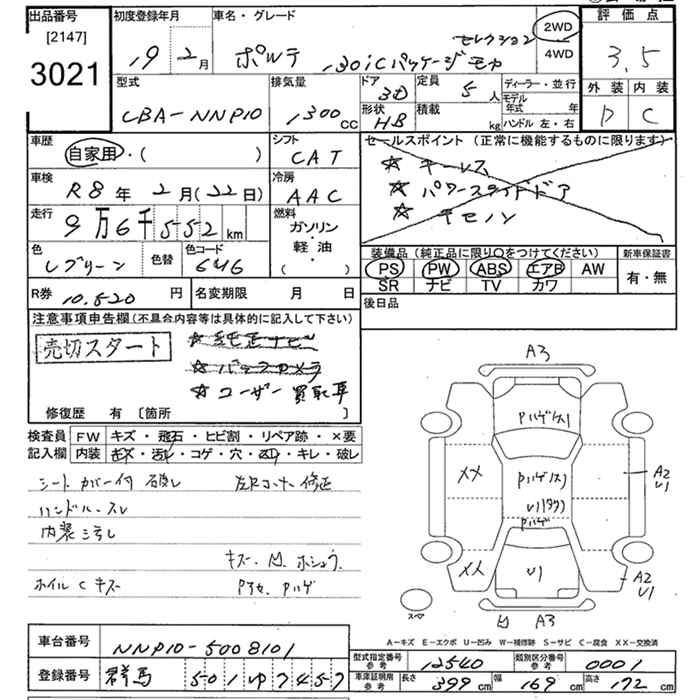 出品番号 初度登録年月 車名・グレード 評価点
[2147] セレクション 2WD
3021 19年 2月 ポルテ 130iCパッケージ モカ 4WD 3.5
型式 排気量 ドア 定員 ディーラー・並行 外装 内装
CBA-NNP10 1300cc 3D 5人 モデル年式 年 D C
形状 HB 積載 kg ハンドル 左・右
車歴 シフト セールスポイント (正常に機能するものに限ります)
自家用・( ) CAT ☆ キーレス
車検 冷房 ☆ パワースライドドア
R8年 2月(22日) AAC ☆ キモノン
走行 燃料
9万6千552km ガソリン・軽油・( )
色 色替 色コード 装備品 (純正品に限り○をつけてください) 新車保証書
Lグリーン 6U6 PS PW ABS エアB AW 有・無
SR ナビ TV カワ
R券 10.520円 名変期限 月 日 後日品
注意事項申告欄(不具合内容等は具体的に記入して下さい)
売切スタート ☆純正ナビ
☆バックカメラ
☆ユーザー買取車
修復歴 有 [箇所 ]
検査員 FW キズ・飛石・ヒビ割・リペア跡・×要
記入欄 内装 キズ・汚れ・コゲ・穴・凹・キレ・破レ
シートカバー付 破レ 左Rコーナー修正
ハンドルスレ
内装ヨゴレ
キズ・凹・ホシュウ
ホイルCキズ Pアセ Pハゲ
A3
Pハゲ(ス)
XX Pハゲ(ス) A2
U1
U1(タワ)
Pハゲ
XX U1 A2
U1
スペア
凹 A3
A-キズ E-エクボ U-凹み W-補修跡 S-サビ C-腐食 XX-交換済
車台番号 NNP10-5008101
型式指定番号 参考 12540 類別区分番号 参考 0001
登録番号 群馬 501ゆ7457
車庫証明用 参考 長さ 399cm 幅 169cm 高さ 172cm